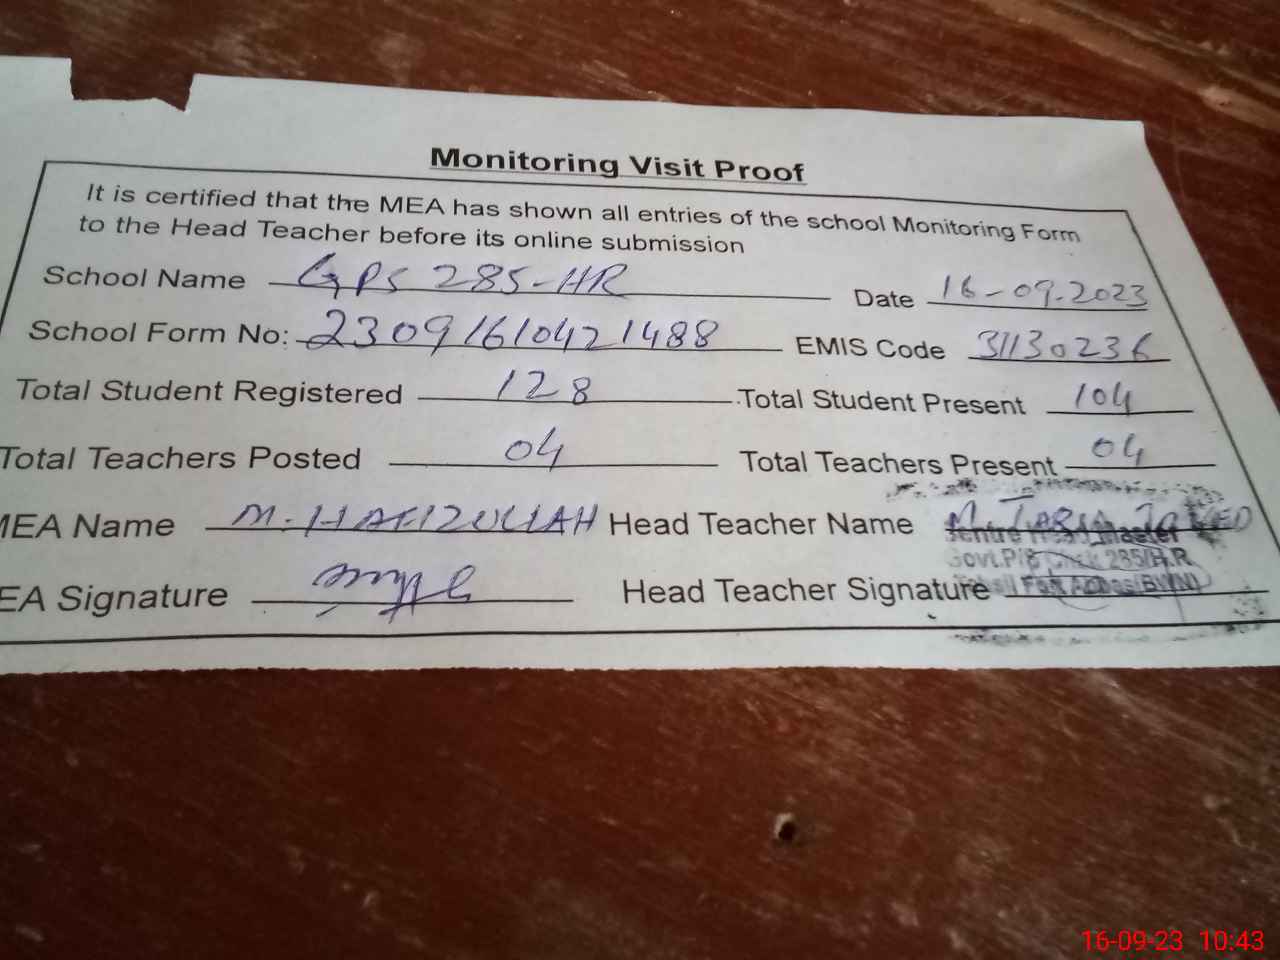 Monitoring Visit Proof
It is certified that the MEA has shown all entries of the school Monitoring Form
to the Head Teacher before its online submission
School Name GPS 285-HR Date 16-09-2023
School Form No: 23091610421488 EMIS Code 31130236
Total Student Registered 128 Total Student Present 104
Total Teachers Posted 04 Total Teachers Present 04
MEA Name M. HAFIZULLAH Head Teacher Name M. TARIQ
Head Master
Govt. P/S Chak 285/H.R
EA Signature Head Teacher Signature Fort Abbas (BWN)
16-09-23 10:43